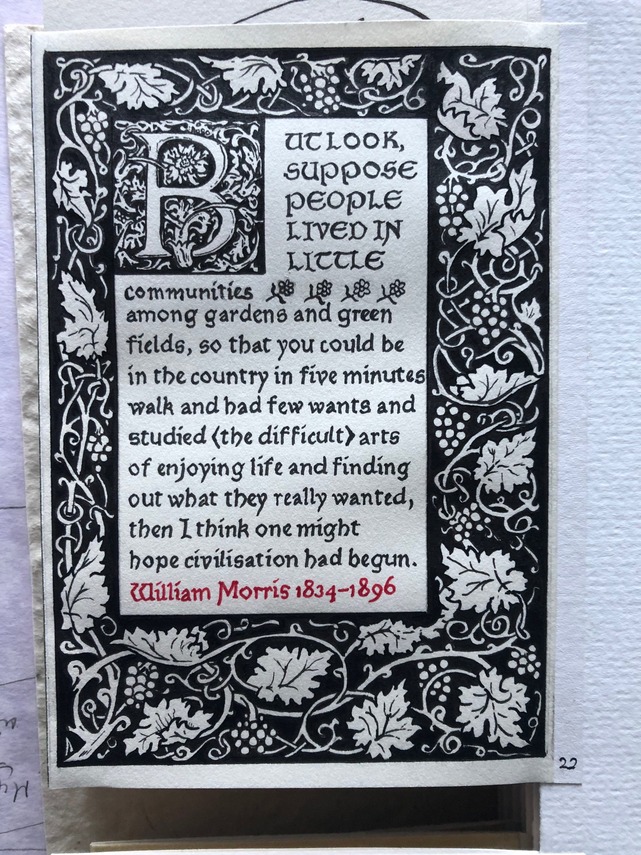 BUT LOOK,
SUPPOSE
PEOPLE
LIVED IN
LITTLE
communities
among gardens and green
fields, so that you could be
in the country in five minutes
walk and had few wants and
studied (the difficult) arts
of enjoying life and finding
out what they really wanted,
then I think one might
hope civilisation had begun.
William Morris 1834-1896
22